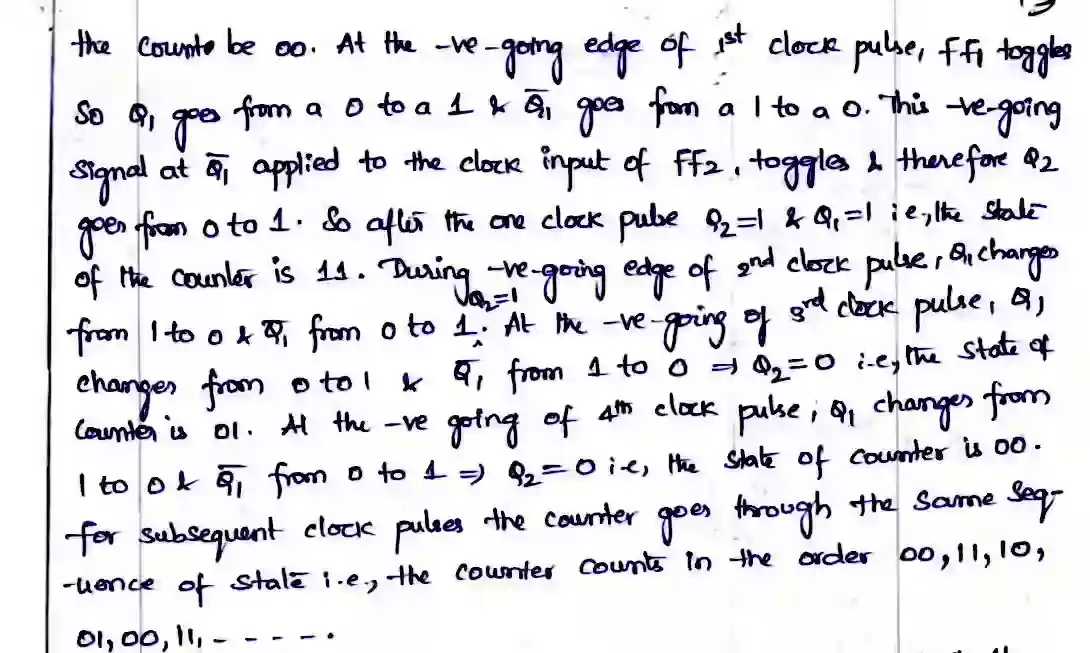 the counte be 00. At the -ve-going edge of 1st clock pulse, FF1 toggles
So Q1 goes from a 0 to a 1 & Q̅1 goes from a 1 to a 0. This -ve-going
signal at Q̅1 applied to the clock input of FF2, toggles & therefore Q2
goes from 0 to 1. So after the one clock pulse Q2=1 & Q1=1 i.e., the state
of the counter is 11. During -ve-going edge of 2nd clock pulse, Q1 changes
from 1 to 0 & Q̅1 from 0 to 1. Q2=1 At the -ve-going of 3rd clock pulse, Q1
changes from 0 to 1 & Q̅1 from 1 to 0 ⇒ Q2=0 i.e, the state of
counter is 01. At the -ve going of 4th clock pulse, Q1 changes from
1 to 0 & Q̅1 from 0 to 1 ⇒ Q2=0 i.e, the state of counter is 00.
for subsequent clock pulses the counter goes through the same seq-
-uence of state i.e., the counter counts in the order 00, 11, 10,
01, 00, 11, - - - - - .